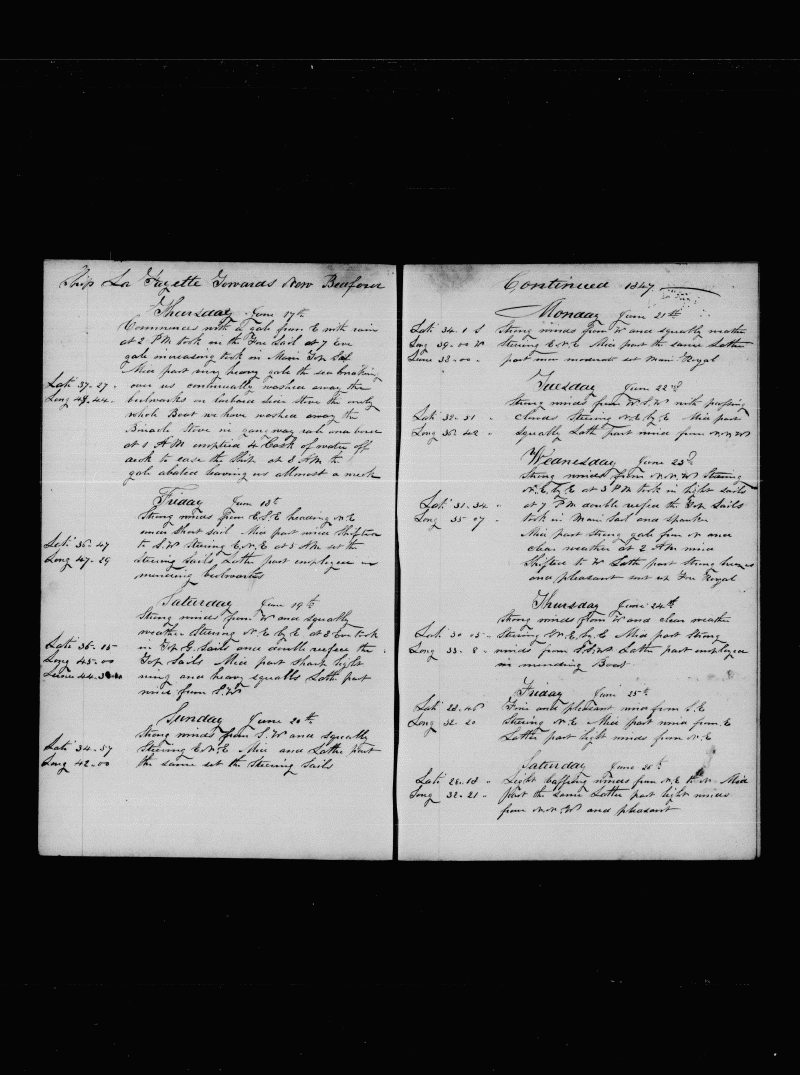 Ship La Fayette Towards New Bedford
Thursday June 17th
Commences with a gale from E with rain
at 2 PM took in the Fore Sail at 7 Eve
gale increasing took in Main Top Sail
Mid part very heavy gale the sea breaking
Lati 37-27 - over us continually washed away the
Long 48-44 - bulwarks on larboard side stove the
whole Boat we have washed away the
Binacle stove in gangway rale and
at 1 AM emptied 4 Cask of water off
deck to ease the Ship at 3 AM the
gale abated leaving us allmost a wreck
Friday June 18th
Strong winds from E.S.E heading N.E
under Short sail Mid part wind Shifted
Lati 36-47 to S.W Steering E.N.E at 5 AM set the
Long 47-29 Steering Sails Latter part employed in
mending bulwarks
Saturday June 19th
Strong winds from W and squally
weather Steering N.E by E at 8 Eve took
Lati 36-15 in Top G. Sails and double reefed the
Long 45-00 Top Sails Mid part Sharp light
Luner 44-30 ning and heavy squalls Latter part
wind from S.W
Sunday June 20th
Strong winds from S.W and squally
Lati 34-57 Steering E.N.E Mid and Latter part
Long 42-00 the same set the Steering Sails
Continued 1847
Monday June 21st
Lati 34-1 S Strong winds from W and squally weather
Long 39-00 W Steering E.N.E Mid part the same Latter
Luner 38-00 - part more moderate set Main Royal
Tuesday June 22nd
Strong winds from W.S.W with passing
Lati 32-31 - clouds Steering N.E by E Mid part
Long 36-42 - squally Latt part wind from N.N.W
Wednesday June 23d
Strong winds from N.N.W Steering
N.E by E at 3 PM took in light sails
Lati 31-34 - at 7 PM double reefed the Top Sails
Long 35-07 - took in Main Sail and Spanker
Mid part Strong gale from N and
clear weather at 2 AM wind
Shifted to W Latt part Strong breezes
and pleasant set up Fore Royal
Thursday June 24th
Strong winds from W and clear weather
Lati 30-05 - Steering N.E by E Mid part Strong
Long 33-8 - winds from S.S.W Latter part employed
in mending Boat
Friday June 25th
Lati 28.48 Fine and pleasant wind from S.E
Long 32-20 Steering N.E Mid part wind from E
Latter part light winds from N.E
Saturday June 26th
Lati 28-18 - Light baffling winds from N.E to N - Mid
Long 32-21 - part the same Latter part light winds
from N.N.W and pleasant